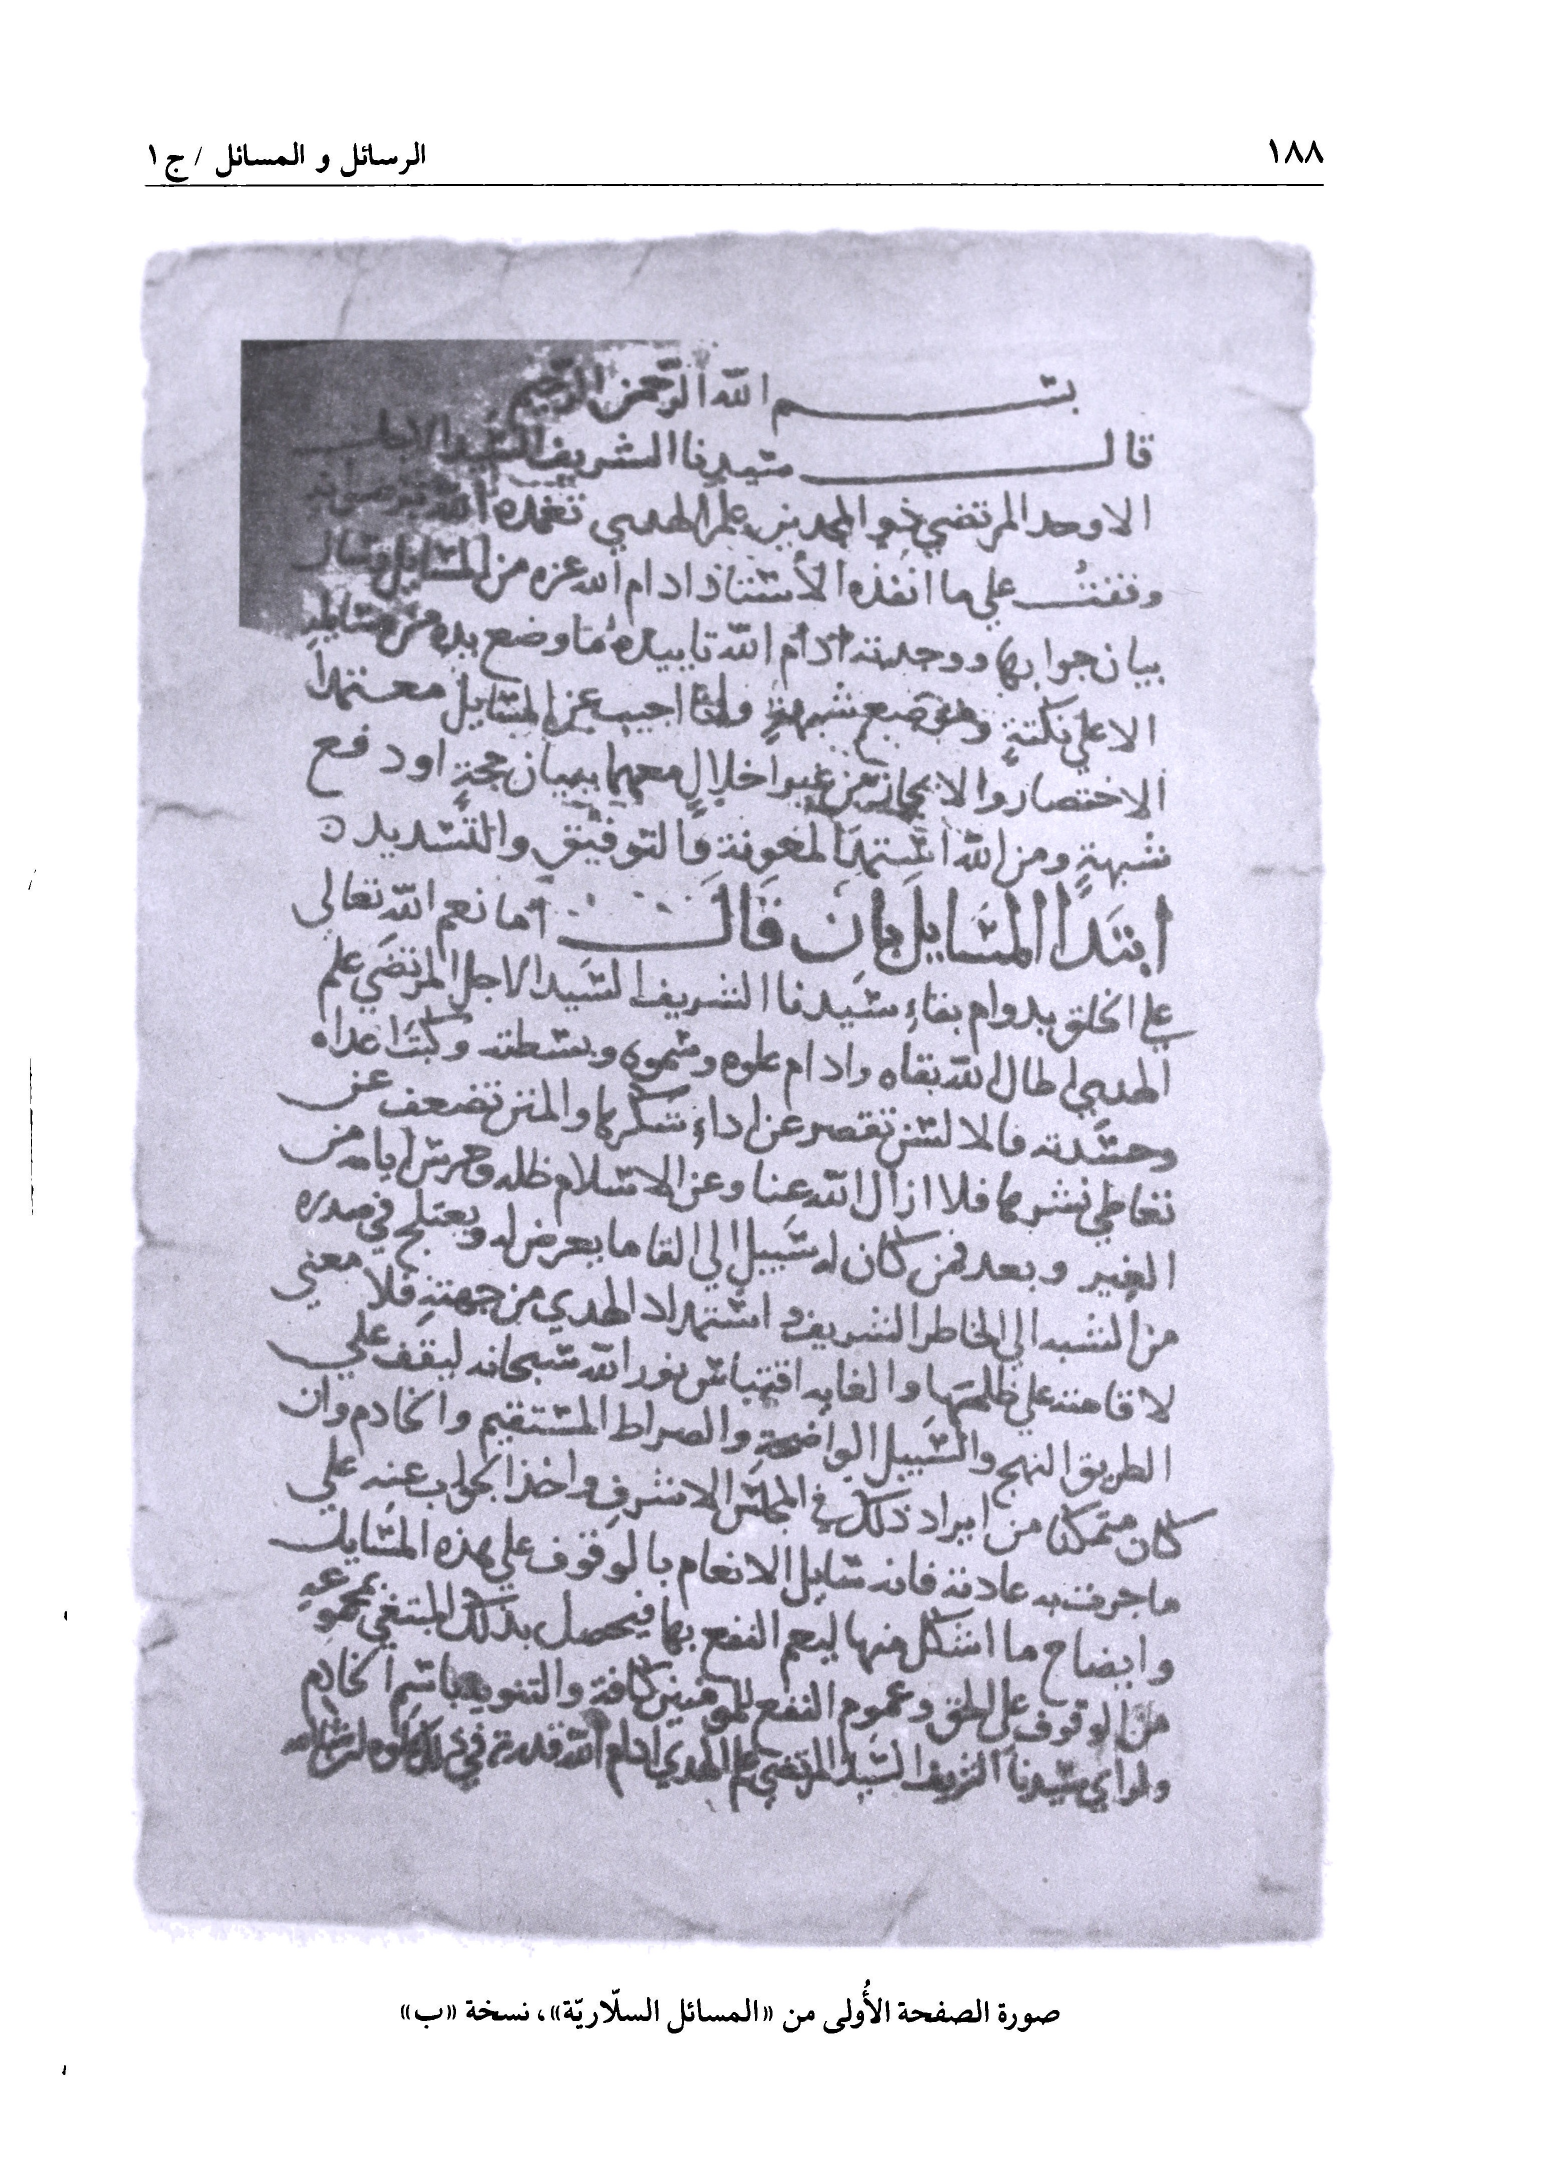 ١٨٨
الرسائل و المسائل / ج ١
بسم الله الرحمن الرحيم
قال سيدنا الشريف السيد الاجل
الاوحد المرتضي ذو المجدين علم الهدي تغمده الله
وقفت علي ما انفذه الأستاذ ادام الله عزه من المسايل وسال
بيان جوابها ووجدته ادام الله تاييده ما وضع يده من مسايله
الا علي نكتةٍ وموضع شبهةٍ وانا اجيب عن المسايل معتمداً
الاختصار والايجاز من غير اخلالٍ معهما ببيان حجةٍ او دفع
شبهةٍ ومن الله استمد المعونة والتوفيق والتسديد
ابتدا المسايل بان قال اما نعم الله تعالي
علي الخلق بدوام بقاء سيدنا الشريف السيد الاجل المرتضي علم
الهدي اطال الله بقاه وادام علوه وسموه وبسطته وكبت اعداه
وحسدته فالالسن تقصر عن اداء شكرها والمنن تضعف عن
تعاطي نشرها فلا ازال الله عنا وعن الاسلام ظله وحرس ايامه من
الغير وبعد فمن كان له سبيل الي القا ما يعرض له ويعتلج في صدره
من الشبه الي الخاطر الشريف واستمداد الهدي من جهته فلا معني
لاقامته علي ظلمتها والغايه اقتباس نور الله سبحانه ليقف علي
الطريق النهج والسبيل الواضحة والصراط المستقيم والخادم وان
كان متمكنا من ايراد ذلك في المجلس الاشرف واخذ الجواب عنه علي
ما جرت به عادته فانه سايل الانعام بالوقوف علي هذه المسايل
وايضاح ما اشكل منها ليعم النفع بها فيحصل بذلك المبتغي بمجموعه
من الوقوف علي الحق وعموم النفع للمومنين كافة والتنويه باسم الخادم
ولراي سيدنا الشريف السيد المرتضي علم الهدي ادام الله قدرته في ذلك علوه ان شا الله
صورة الصفحة الأُولى من «المسائل السلّاريّة»، نسخة «ب»